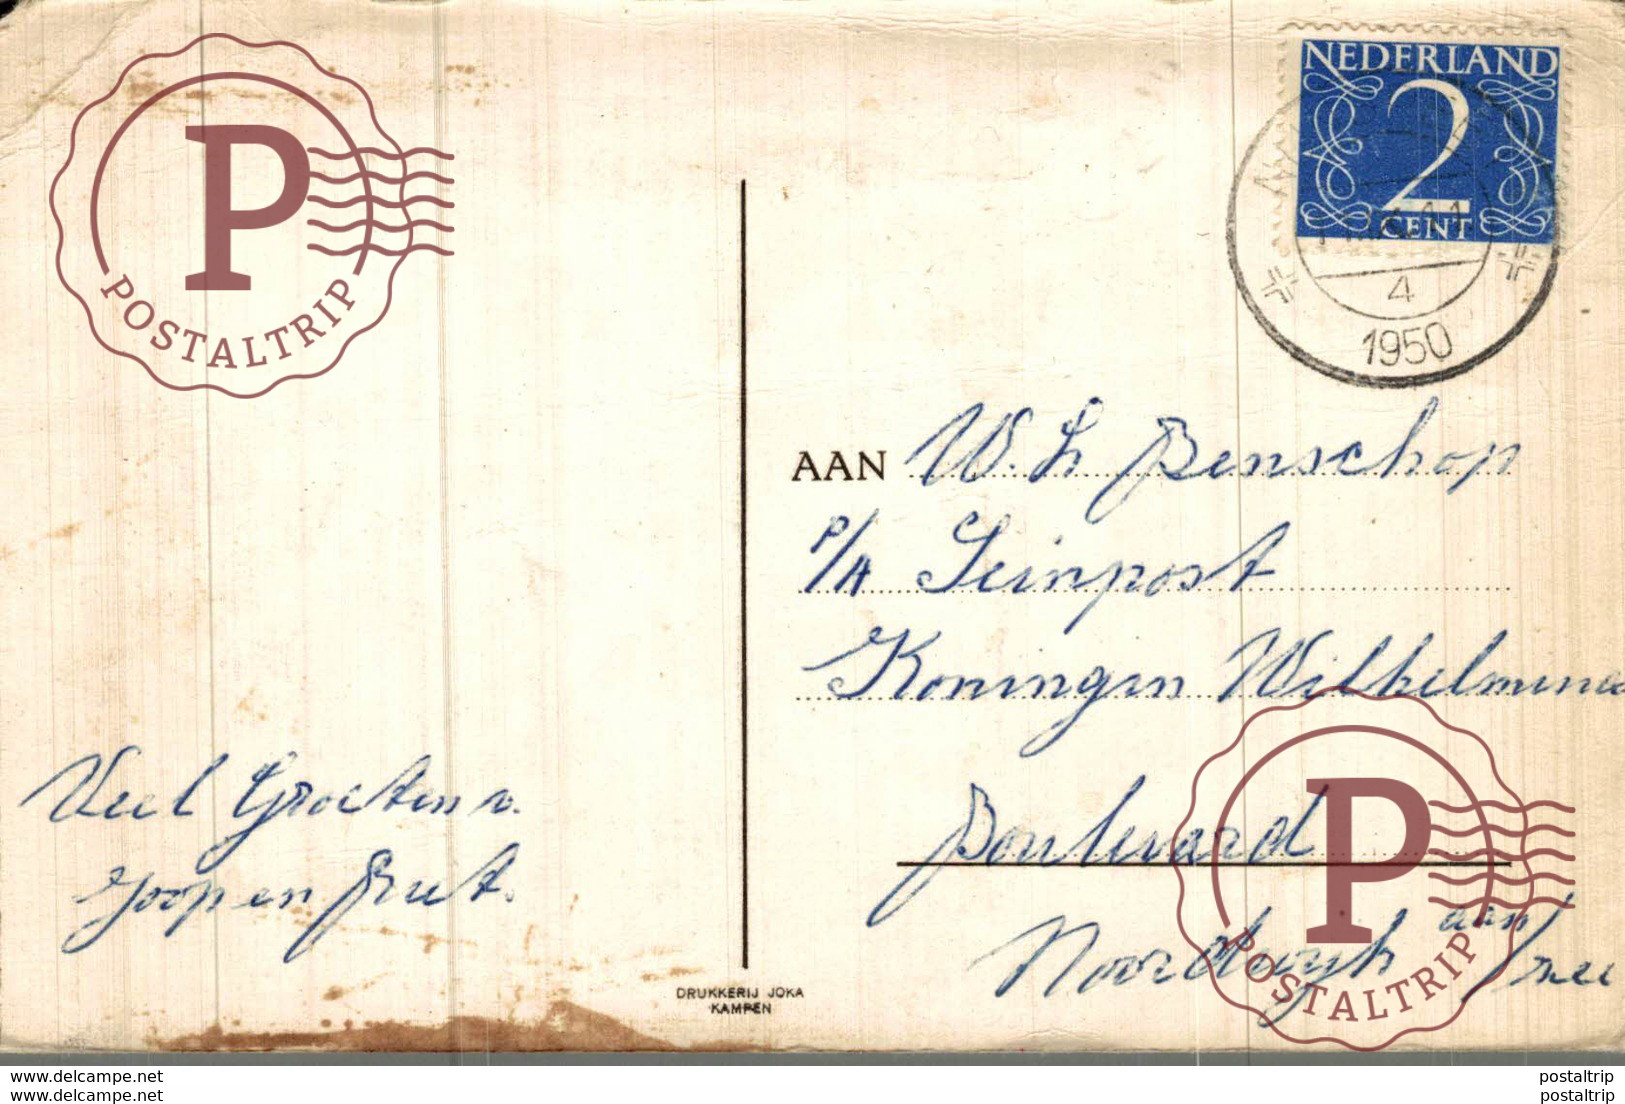 NEDERLAND
2
CENT
4
1950
P
POSTALTRIP
AAN W. L Benschop
P/A Seinpost
Koningin Wilhelmina
Boulevard
Noordwijk aan/zee
Veel Groeten v.
Joop en Griet.
DRUKKERIJ JOKA
KAMPEN
P
POSTALTRIP
www.delcampe.net
www.delcampe.net
postaltrip
postaltrip